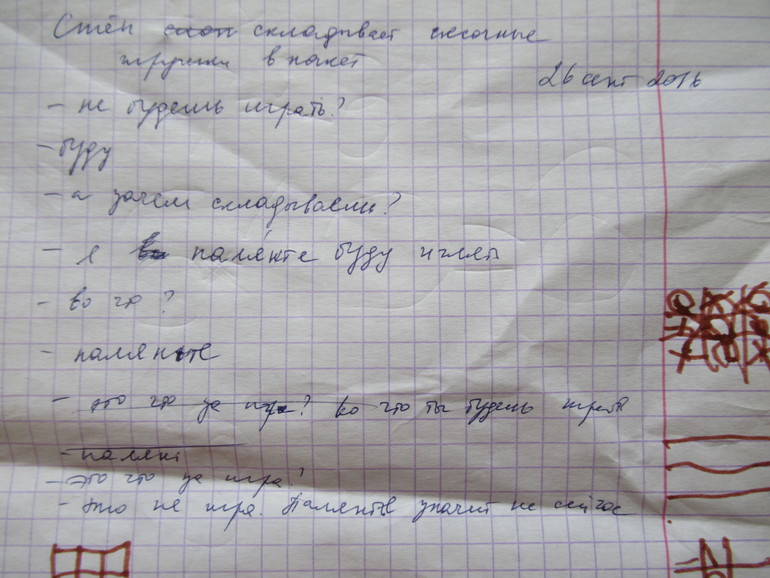 Стён складывает песочные
игрушки в пакет
26 сент 2016
- не будешь играть?
- буду
- а зачем складываешь?
- я палянте буду иглять
- во что?
- палянте
- это что за игра? Во что ты будешь играть
- палянт
- это что за игра?
- это не игра. Палянте значит не сейчас